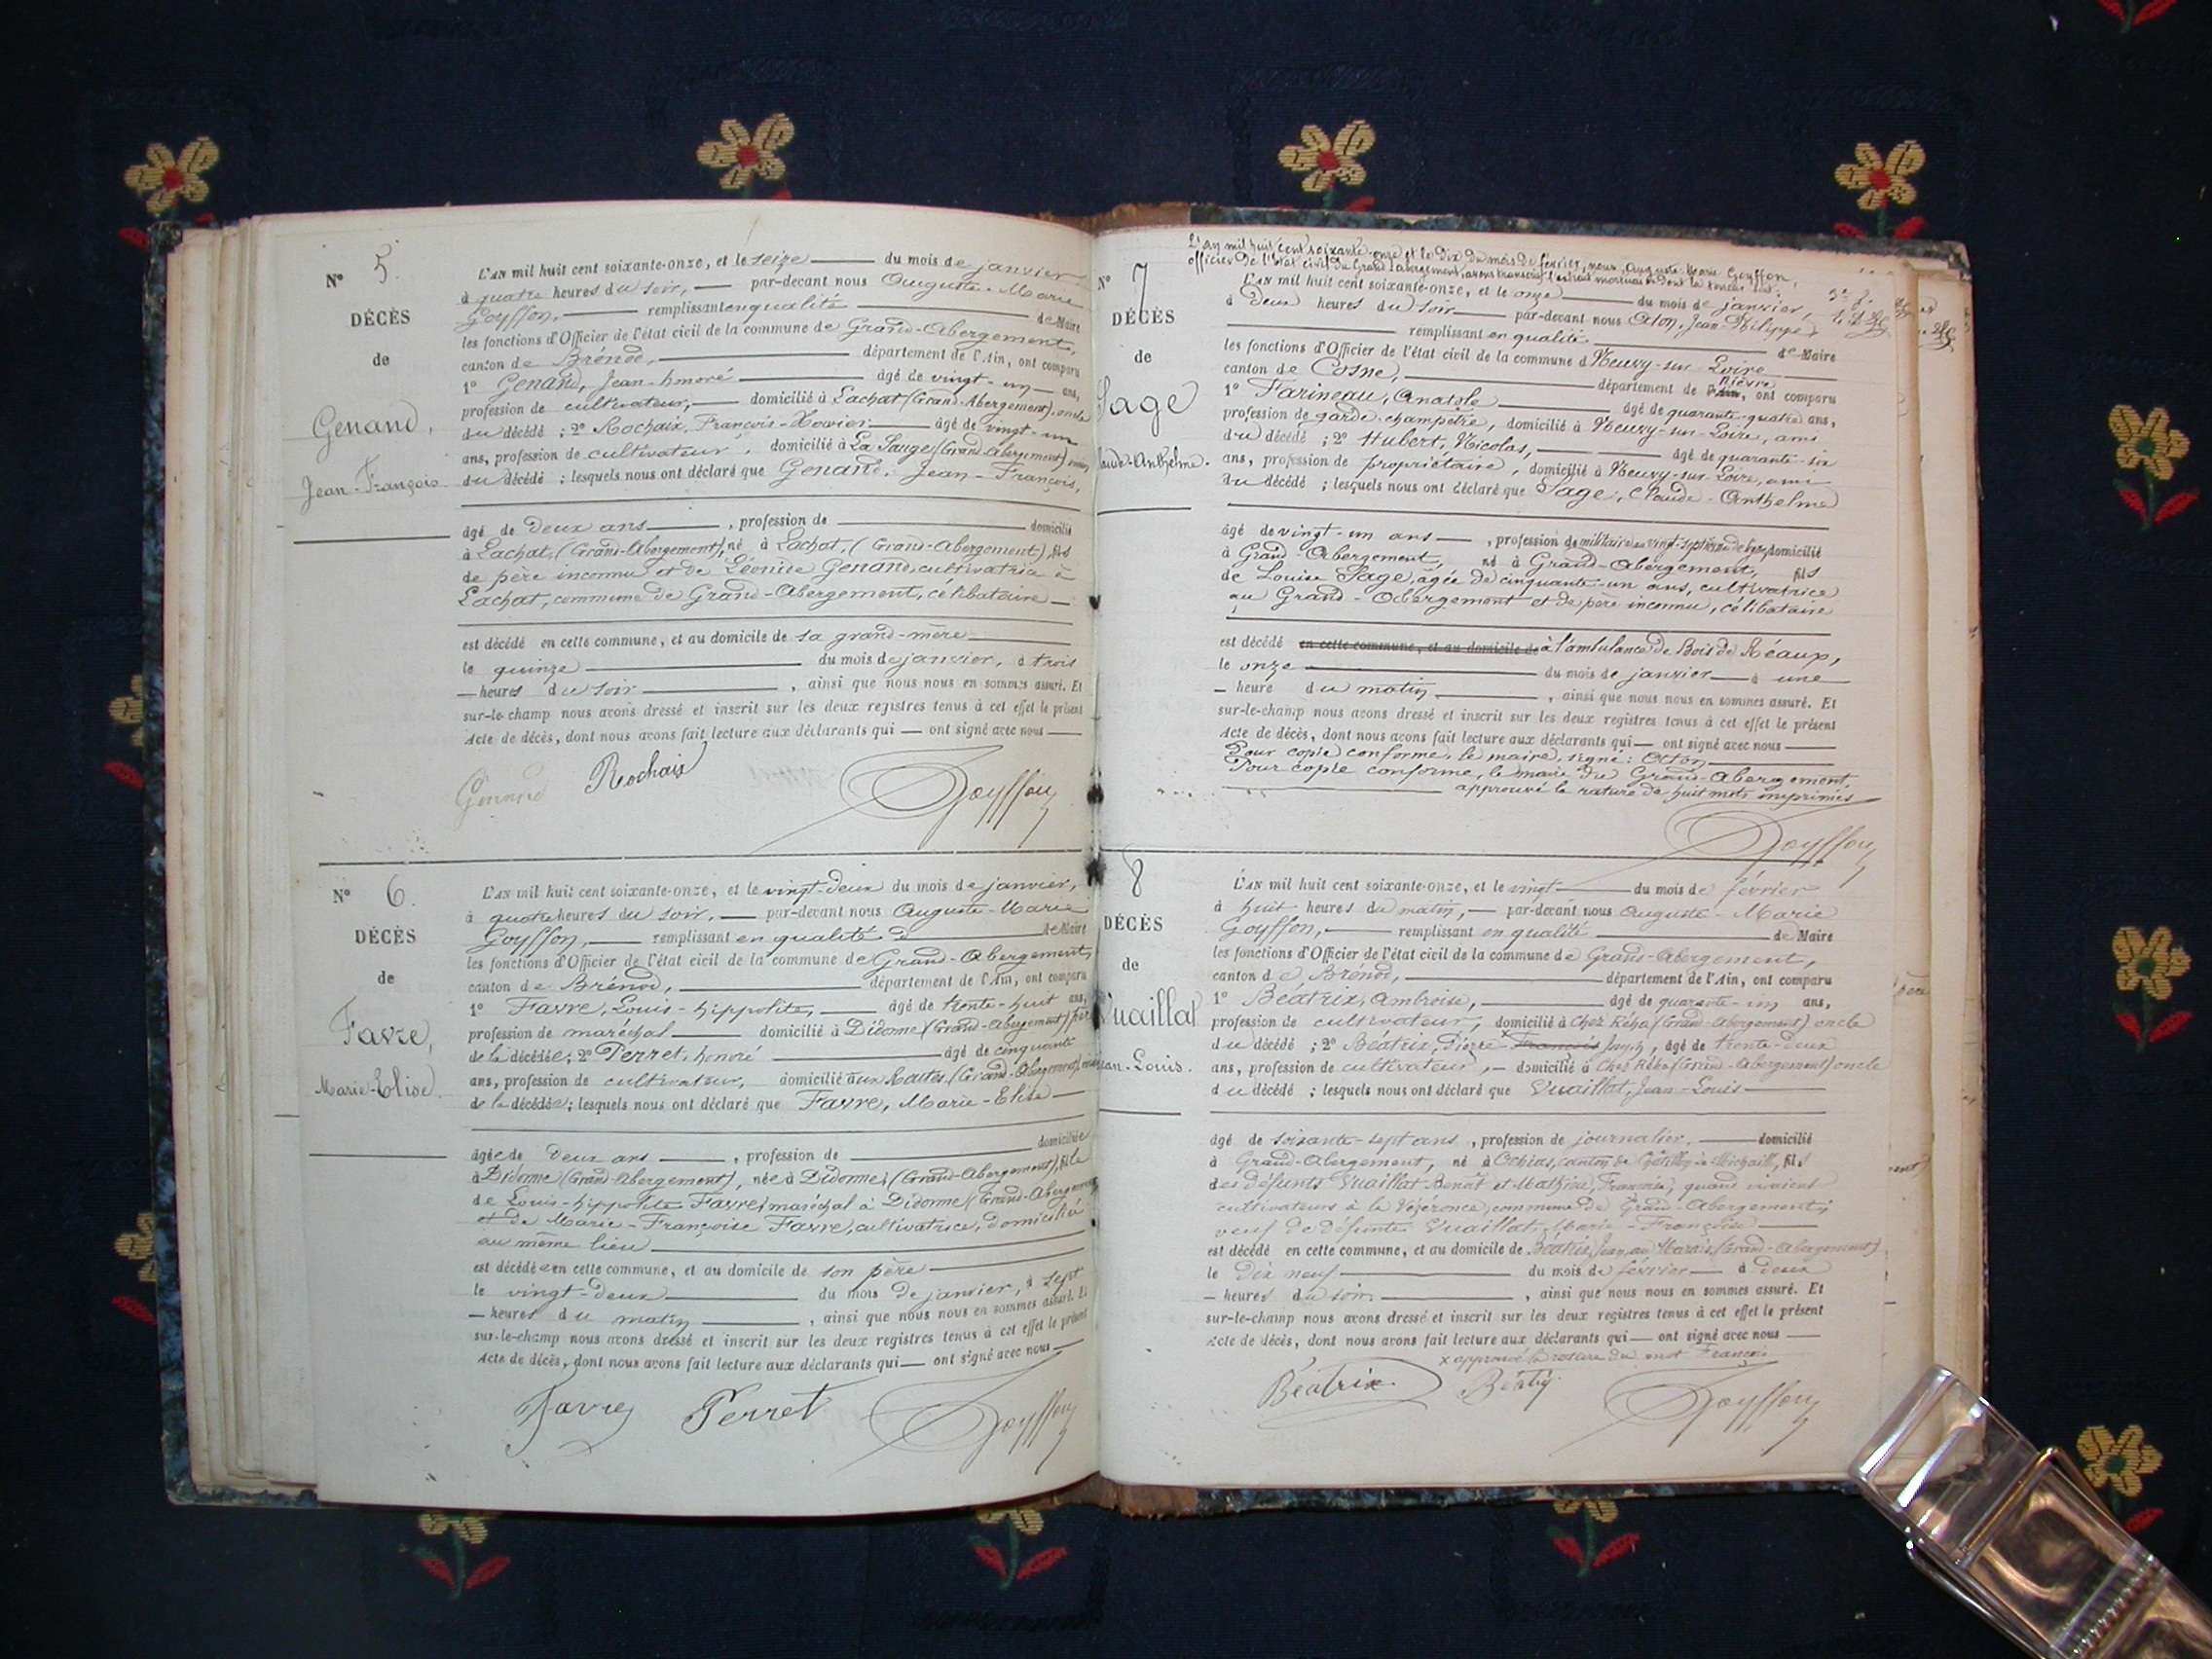 N° 5.
DÉCÈS
de
Genand,
Jean-François
L'AN mil huit cent soixante-onze, et le seize du mois de janvier
à quatre heures du soir, par-devant nous Auguste-Marie
Goyffon, remplissant en qualité de Maire
les fonctions d'Officier de l'état civil de la commune de Grand-Abergement,
canton de Brénod, département de l'Ain, ont comparu
1° Genand, Jean-honoré âgé de vingt-un ans,
profession de cultivateur, domicilié à Lachat (Grand-Abergement), oncle
du décédé ; 2° Rochaix, François-Xavier âgé de vingt-un
ans, profession de cultivateur, domicilié à La Sauge (Grand-Abergement) voisin
du décédé ; lesquels nous ont déclaré que Genand, Jean-François,
âgé de deux ans, profession de domicilié
à Lachat, (Grand-Abergement), né à Lachat, (Grand-Abergement), fils
de père inconnu et de Léonise Genand, cultivatrice à
Lachat, commune de Grand-Abergement, célibataire
est décédé en cette commune, et au domicile de sa grand-mère
le quinze du mois de janvier, à trois
heures du soir, ainsi que nous nous en sommes assuré. Et
sur-le-champ nous avons dressé et inscrit sur les deux registres tenus à cet effet le présent
Acte de décès, dont nous avons fait lecture aux déclarants qui ont signé avec nous
Genand Rochaix Goyffon
N° 6.
DÉCÈS
de
Favre,
Marie-Elise.
L'AN mil huit cent soixante-onze, et le vingt-deux du mois de janvier,
à quatre heures du soir, par-devant nous Auguste-Marie
Goyffon, remplissant en qualité de Maire
les fonctions d'Officier de l'état civil de la commune de Grand-Abergement,
canton de Brénod, département de l'Ain, ont comparu
1° Favre, Louis-hippolite, âgé de trente-huit ans,
profession de maréchal domicilié à Didorme (Grand-Abergement) père
de la décédée; 2° Perret, honoré âgé de cinquante
ans, profession de cultivateur, domicilié aux Routes (Grand-Abergement), voisin
de la décédée; lesquels nous ont déclaré que Favre, Marie-Elise
âgée de deux ans, profession de domiciliée
à Didorme (Grand-Abergement), née à Didorme, (Grand-Abergement), fille
de Louis-hippolite Favre, maréchal à Didorme (Grand-Abergement)
et de Marie-Françoise Favre, cultivatrice, domiciliée
au même lieu
est décédée en cette commune, et au domicile de son père
le vingt-deux du mois de janvier, à sept
heures du matin, ainsi que nous nous en sommes assuré. Et
sur-le-champ nous avons dressé et inscrit sur les deux registres tenus à cet effet le présent
Acte de décès, dont nous avons fait lecture aux déclarants qui ont signé avec nous
Favre Perret Goyffon
L'an mil huit cent soixante-onze et le dix du mois de février, nous, Auguste-Marie Goyffon,
officier de l'état civil du Grand-Abergement, avons transcrit l'extrait mortuaire dont la teneur suit:
N° 7
DÉCÈS
de
Sage
Claude-Anthelme.
L'AN mil huit cent soixante-onze, et le onze du mois de janvier,
à deux heures du soir par-devant nous Aton, Jean Philippe,
remplissant en qualité de Maire
les fonctions d'Officier de l'état civil de la commune d Neuvy-sur-Loire
canton de Cosne, département de Nièvre, ont comparu
1° Farineau, Anatole âgé de quarante-quatre ans,
profession de garde-champêtre, domicilié à Neuvy-sur-Loire, ami
du décédé ; 2° Hubert, Nicolas, âgé de quarante-six
ans, profession de propriétaire, domicilié à Neuvy-sur-Loire, ami
du décédé ; lesquels nous ont déclaré que Sage, Claude-Anthelme
âgé de vingt-un ans, profession de militaire au vingt-septième de ligne, domicilié
à Grand-Abergement, né à Grand-Abergement, fils
de Louise Sage, âgée de cinquante-un ans, cultivatrice
au Grand-Abergement et de père inconnu, célibataire
est décédé en cette commune, et au domicile de à l'ambulance de Bois de Réaux,
le onze du mois de janvier à une
heure du matin, ainsi que nous nous en sommes assuré. Et
sur-le-champ nous avons dressé et inscrit sur les deux registres tenus à cet effet le présent
Acte de décès, dont nous avons fait lecture aux déclarants qui ont signé avec nous
Pour copie conforme, le maire, signé: Aton
Pour copie conforme, le maire du Grand-Abergement,
approuvé la rature de huit mots imprimés
Goyffon
8
DÉCÈS
de
Vuaillat
Jean-Louis.
L'AN mil huit cent soixante-onze, et le vingt du mois de février
à huit heures du matin, par-devant nous Auguste-Marie
Goyffon, remplissant en qualité de Maire
les fonctions d'Officier de l'état civil de la commune de Grand-Abergement,
canton de Brénod, département de l'Ain, ont comparu
1° Béatrix, Ambroise, âgé de quarante-un ans,
profession de cultivateur, domicilié à Chez Réha (Grand-Abergement) oncle
du décédé ; 2° Béatrix, Pierre François Joseph, âgé de trente-deux
ans, profession de cultivateur, domicilié à Chez Réha (Grand-Abergement) oncle
du décédé ; lesquels nous ont déclaré que Vuaillat, Jean-Louis
âgé de soixante-sept ans, profession de journalier, domicilié
à Grand-Abergement, né à Ochias, canton de Châtillon-de-Michaille, fils
des défunts Vuaillat Benoît et Mathieu, Françoise, quand vivaient
cultivateurs à la Vézéronce, commune de Grand-Abergement;
veuf de défunte Vuaillat, Marie-Françoise
est décédé en cette commune, et au domicile de Béatrix, Jean, au Marais, (Grand-Abergement)
le dix neuf du mois de février à deux
heures du soir, ainsi que nous nous en sommes assuré. Et
sur-le-champ nous avons dressé et inscrit sur les deux registres tenus à cet effet le présent
Acte de décès, dont nous avons fait lecture aux déclarants qui ont signé avec nous
x approuvé la rature du mot François
Béatrix Béatrix Goyffon